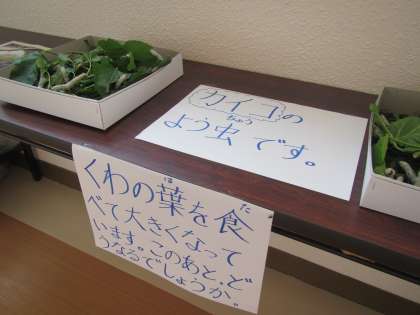 カイコの
よう虫です。
ちゅう
くわの葉を食
は
た
べて大きくなって
います。このあと、ど
うなるでしょうか。